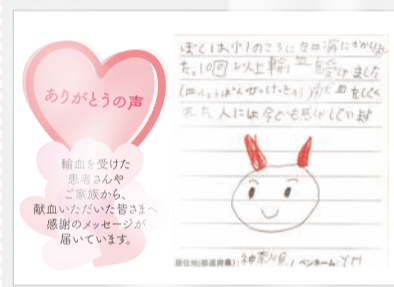 ありがとうの声
輸血を受けた
患者さんや
ご家族から、
献血いただいた皆さまへ
感謝のメッセージが
届いています。
ぼくは小1のころに白血病にかかりまし
た。10回以上輸血を受けました
(血しょうばんゆけつとう) 献血をしてく
れた人には今でも感しゃしています
居住地(都道府県) 神奈川県 / ペンネーム YM